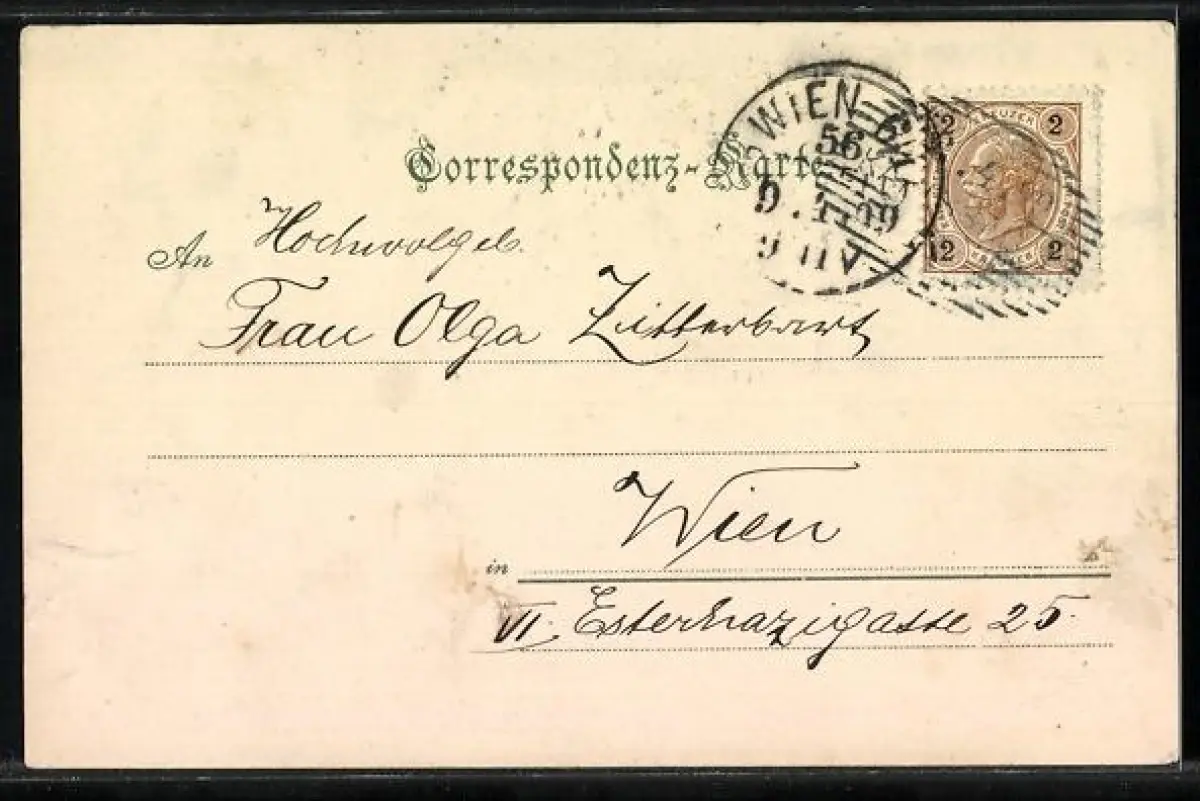 Correspondenz-Karte
WIEN
56
9
2 KREUZER 2
2 KREUZER 2
An Hochwolgeb.
Frau Olga Zitterbart
Wien
in
VI. Esterhazigasse 25.